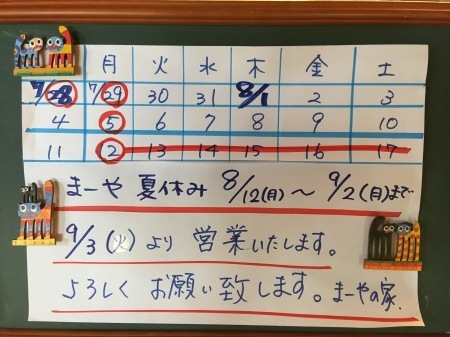 月 火 水 木 金 土
7/28 7/29 30 31 8/1 2 3
4 5 6 7 8 9 10
11 12 13 14 15 16 17
まーや 夏休み 8/12(月)～9/2(月)まで
9/3(火)より 営業いたします。
よろしく お願い致します。まーやの家.